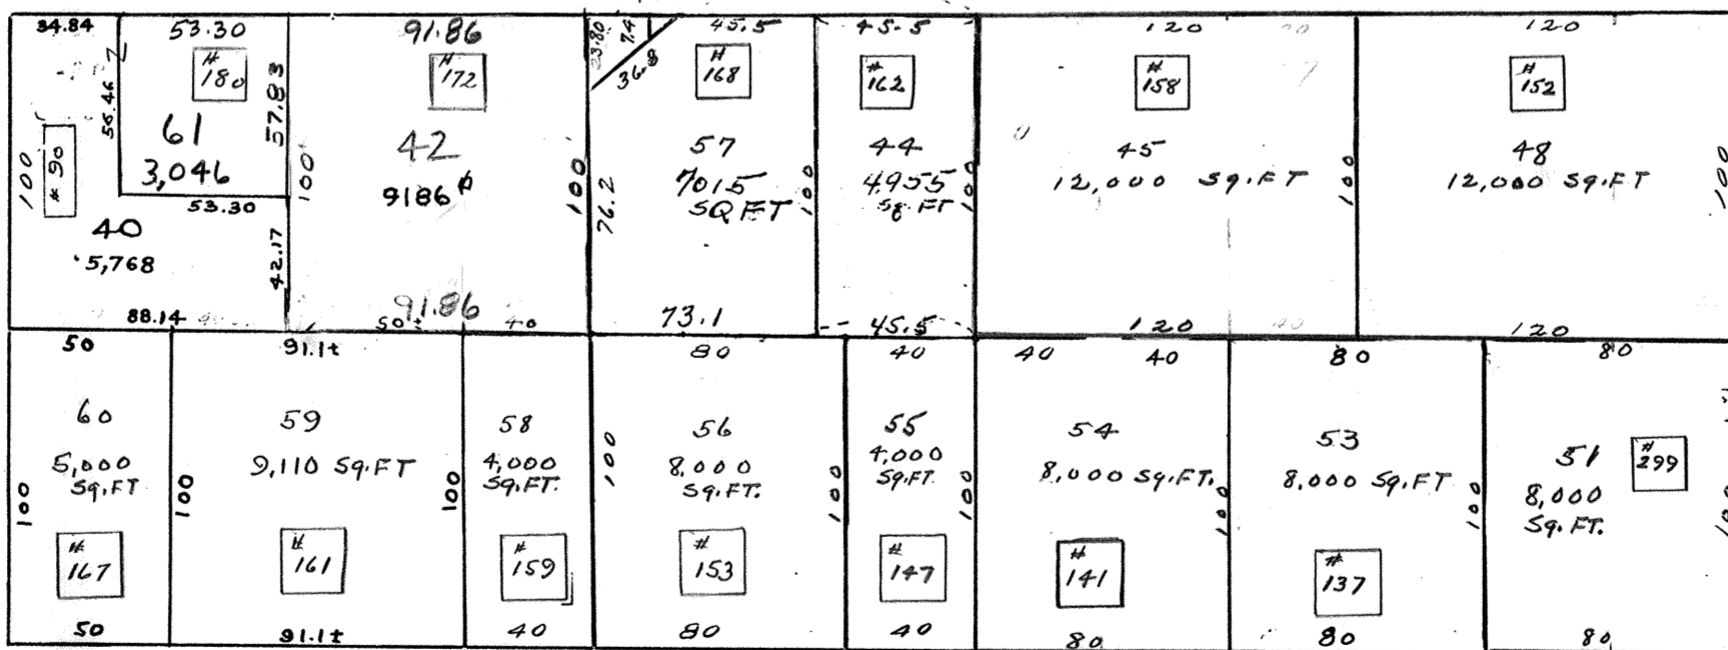 34.84
53.30
# 180
56.46
57.83
61
3,046
53.30
100
# 90
40
5,768
42.17
88.14
91.86
# 172
100
42
9186 ⌀
100
91.86
50±
40
23.80
7.4
36.8
45.5
# 168
57
7015
SQ FT
76.2
100
73.1
45.5
# 162
44
4955
Sq. FT
100
45.5
120
# 158
45
12,000 Sq.FT
100
120
40
120
# 152
48
12,000 Sq.FT
100
120
50
60
5,000
Sq.FT
100
# 167
50
91.1±
59
9,110 Sq.FT
100
100
# 161
91.1±
58
4,000
Sq.FT.
# 159
40
80
100
56
8,000
Sq.FT.
100
# 153
80
40
55
4,000
Sq.FT.
100
# 147
40
40
40
54
8,000 Sq.FT.
100
# 141
80
80
53
8,000 Sq.FT
100
# 137
80
80
51
8,000
Sq.FT.
# 299
100
80